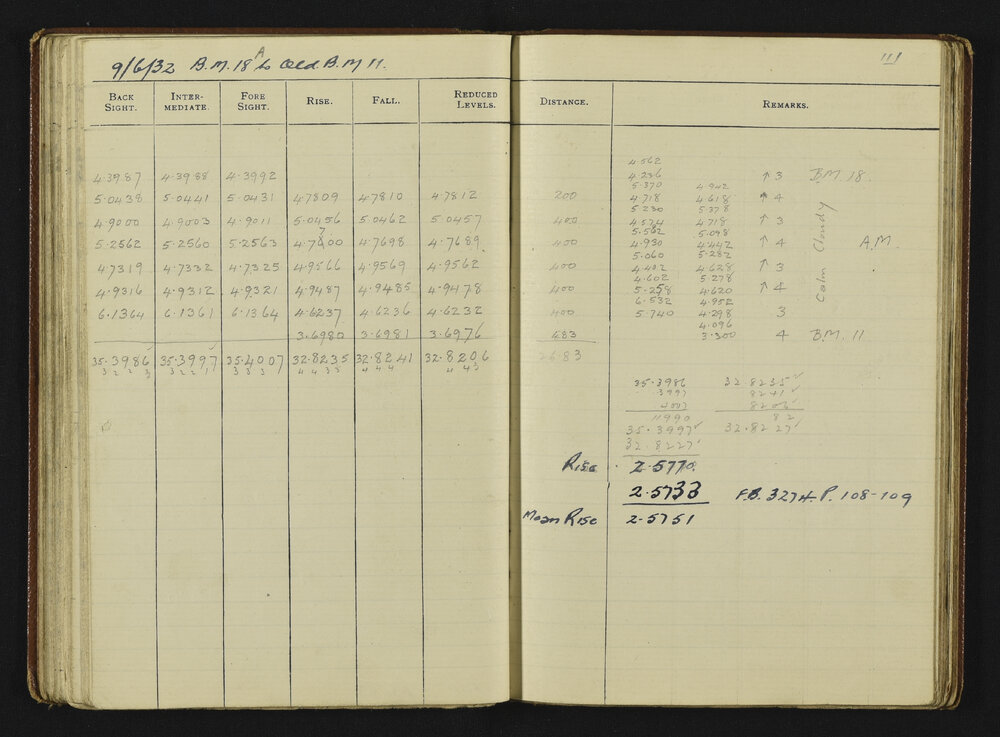 111
9/6/32 B.M. 18 A to Old B.M 11.
BACK SIGHT. INTER-MEDIATE. FORE SIGHT. RISE. FALL. REDUCED LEVELS. DISTANCE. REMARKS.
4.562
4.3987 4.3988 4.3992 4.236 ↑ 3 B.M. 18.
5.370 4.942
5.0438 5.0441 5.0431 4.7809 4.7810 4.7812 200 4.718 4.618 4
5.230 5.378
4.9000 4.9003 4.9011 5.0456 5.0462 5.0457 400 4.574 4.718 ↑ 3
5.582 5.098
5.2562 5.2560 5.2563 4.7600 4.7698 4.7689 400 4.930 4.442 ↑ 4 A.M.
7
5.060 5.282
4.7319 4.7332 4.7325 4.9566 4.9569 4.9562 400 4.402 4.628 ↑ 3
4.602 5.278
4.9316 4.9312 4.9321 4.9487 4.9485 4.9478 400 5.258 4.620 ↑ 4
6.532 4.952
6.1364 6.1361 6.1364 4.6237 4.6236 4.6232 400 5.740 4.298 3
4.096
3.6980 3.6981 3.6976 483 3.300 4 B.M. 11
Calm Cloudy
35.3986 35.3997 35.4007 32.8235 32.8241 32.8206 2683
3 2 2 3 3 2 2 1 3 3 3 4 4 3 3 4 4 4 4 4 3
35.3986 32 8235
3997 8241
4007 8206
11990 82
35.3997 32.8227
32.8227
Rise 2.5770
2.5733 F.B. 3274. P. 108-109
Mean Rise 2.5751